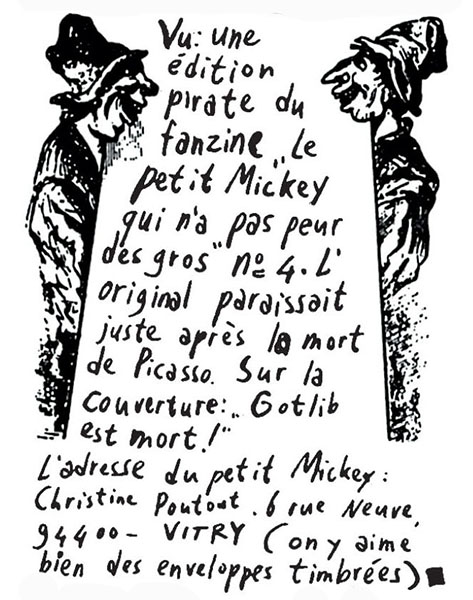 Vu: une
édition
pirate du
fanzine „Le
petit Mickey
qui n'a pas peur
des gros" nº 4. L'
original paraissait
juste après la mort
de Picasso. Sur la
couverture: „Gotlib
est mort!"
L'adresse du petit Mickey:
Christine Poutout. 6 rue Neuve,
94400- VITRY (on y aime
bien des enveloppes timbrées)